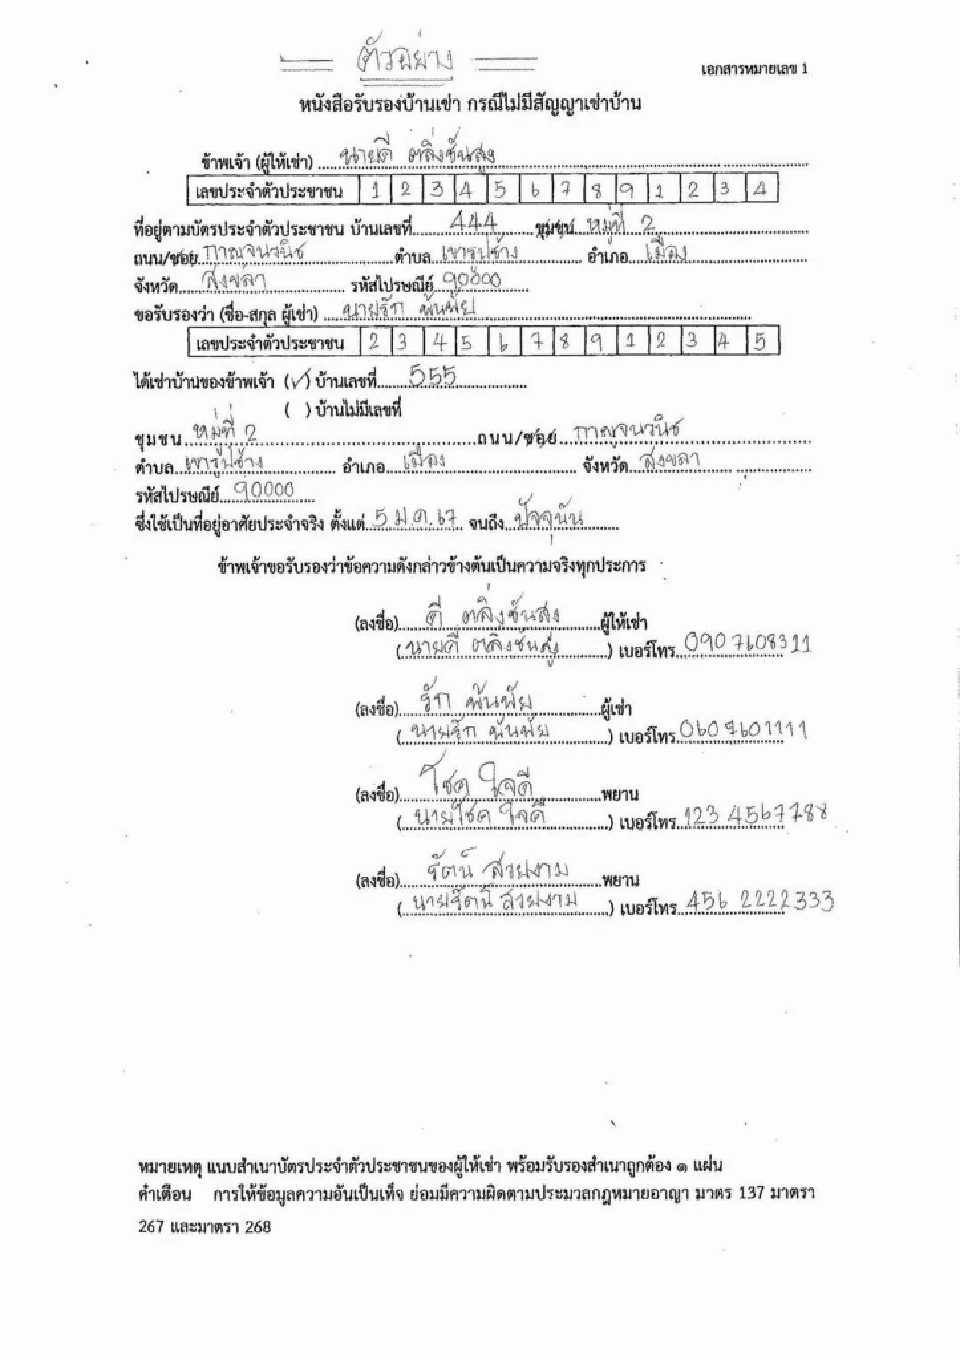 ตัวอย่าง
เอกสารหมายเลข 1
หนังสือรับรองบ้านเช่า กรณีไม่มีสัญญาเช่าบ้าน
ข้าพเจ้า (ผู้ให้เช่า) นายดี ตลิ่งชันสูง
เลขประจำตัวประชาชน 1 2 3 4 5 6 7 8 9 1 2 3 4
ที่อยู่ตามบัตรประจำตัวประชาชน บ้านเลขที่ 444 ชุมชน หมู่ที่ 2
ถนน/ซอย กาญจนวนิช ตำบล เขารูปช้าง อำเภอ เมือง
จังหวัด สงขลา รหัสไปรษณีย์ 90000
ขอรับรองว่า (ชื่อ-สกุล ผู้เช่า) นายรัก พันพัย
เลขประจำตัวประชาชน 2 3 4 5 6 7 8 9 1 2 3 4 5
ได้เช่าบ้านของข้าพเจ้า (✓) บ้านเลขที่ 555
( ) บ้านไม่มีเลขที่
ชุมชน หมู่ที่ 2 ถนน/ซอย กาญจนวนิช
ตำบล เขารูปช้าง อำเภอ เมือง จังหวัด สงขลา
รหัสไปรษณีย์ 90000
ซึ่งใช้เป็นที่อยู่อาศัยประจำจริง ตั้งแต่ 5 ม.ค.67 จนถึง ปัจจุบัน
ข้าพเจ้าขอรับรองว่าข้อความดังกล่าวข้างต้นเป็นความจริงทุกประการ
(ลงชื่อ) ดี ตลิ่งชันสูง ผู้ให้เช่า
(นายดี ตลิ่งชันสูง) เบอร์โทร 0907608311
(ลงชื่อ) รัก พันพัย ผู้เช่า
(นายรัก พันพัย) เบอร์โทร 0607601111
(ลงชื่อ) โชค ใจดี พยาน
(นายโชค ใจดี) เบอร์โทร 123 4567788
(ลงชื่อ) รัตน์ สวยงาม พยาน
(นายรัตน์ สวยงาม) เบอร์โทร 456 2222333
หมายเหตุ แนบสำเนาบัตรประจำตัวประชาชนของผู้ให้เช่า พร้อมรับรองสำเนาถูกต้อง ๑ แผ่น
คำเตือน การให้ข้อมูลความอันเป็นเท็จ ย่อมมีความผิดตามประมวลกฎหมายอาญา มาตร 137 มาตรา
267 และมาตรา 268